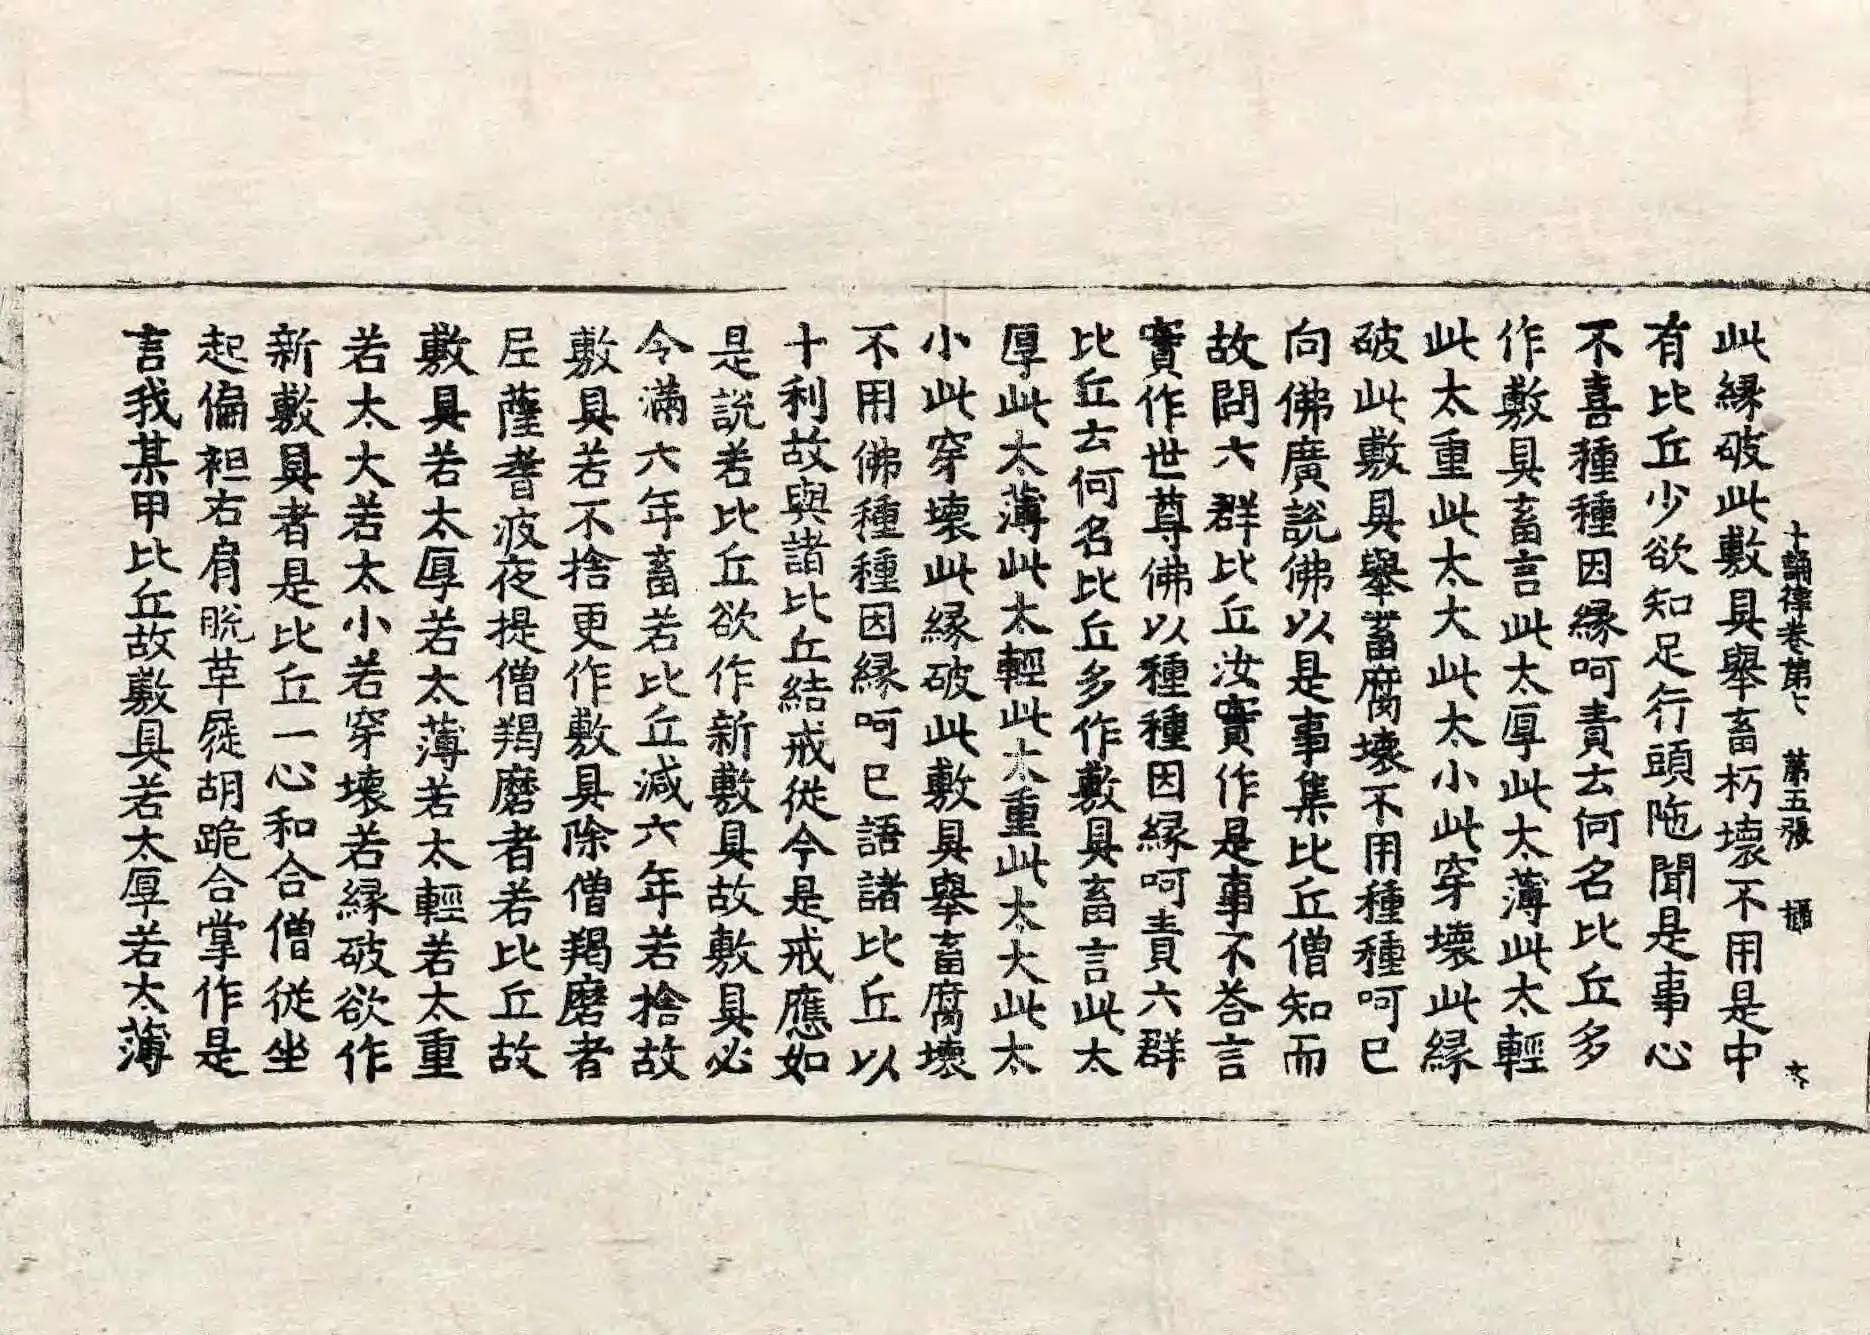 十誦律卷第七 第五張 攝 六
此縁破此敷具舉畜朽壞不用是中
有比丘少欲知足行頭陁聞是事心
不喜種種因縁呵責去何名比丘多
作敷具畜言此太厚此太薄此太輕
此太重此太大此太小此穿壞此縁
破此敷具舉畜腐壞不用種種呵已
向佛廣說佛以是事集比丘僧知而
故問六群比丘汝實作是事不荅言
實作世尊佛以種種因縁呵責六群
比丘去何名比丘多作敷具畜言此太
厚此太薄此太輕此太重此太大此太
小此穿壞此縁破此敷具舉畜腐壞
不用佛種種因縁呵已語諸比丘以
十利故與諸比丘結戒從今是戒應如
是說若比丘欲作新敷具故敷具必
令滿六年畜若比丘減六年若捨故
敷具若不捨更作敷具除僧羯磨者
尼薩耆波夜提僧羯磨者若比丘故
敷具若太厚若太薄若太輕若太重
若太大若太小若穿壞若縁破欲作
新敷具者是比丘一心和合僧從坐
起偏袒右肩脫草屣胡跪合掌作是
言我某甲比丘故敷具若太厚若太薄